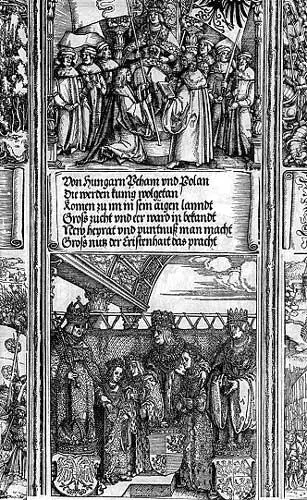 Von Hungarn Beham vnd Polan
Die werden kunig wolgetan
Komen zu im in sein aigen lanndt
Groß zucht vnd eer ward in bekandt
New heyrat vnd puntnuß man macht
Groß nutz der Cristenhait das pracht